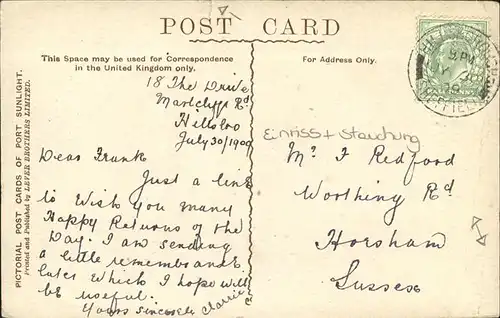 POST CARD
This Space may be used for Correspondence
in the United Kingdom only.
For Address Only.
PICTORIAL POST CARDS OF PORT SUNLIGHT.
Printed and Published by LEVER BROTHERS LIMITED.
18 The Drive
Rd
Hillsboro
July 30/1909
Dear Frank
Just a line
to Wish you many
Happy Returns of the
Day. I am sending
a little remembrance
later which I hope will
be useful.
Yours sincerely
Einriss + Stauchung
Mr F Redford
Worthing Rd
Horsham
Sussex